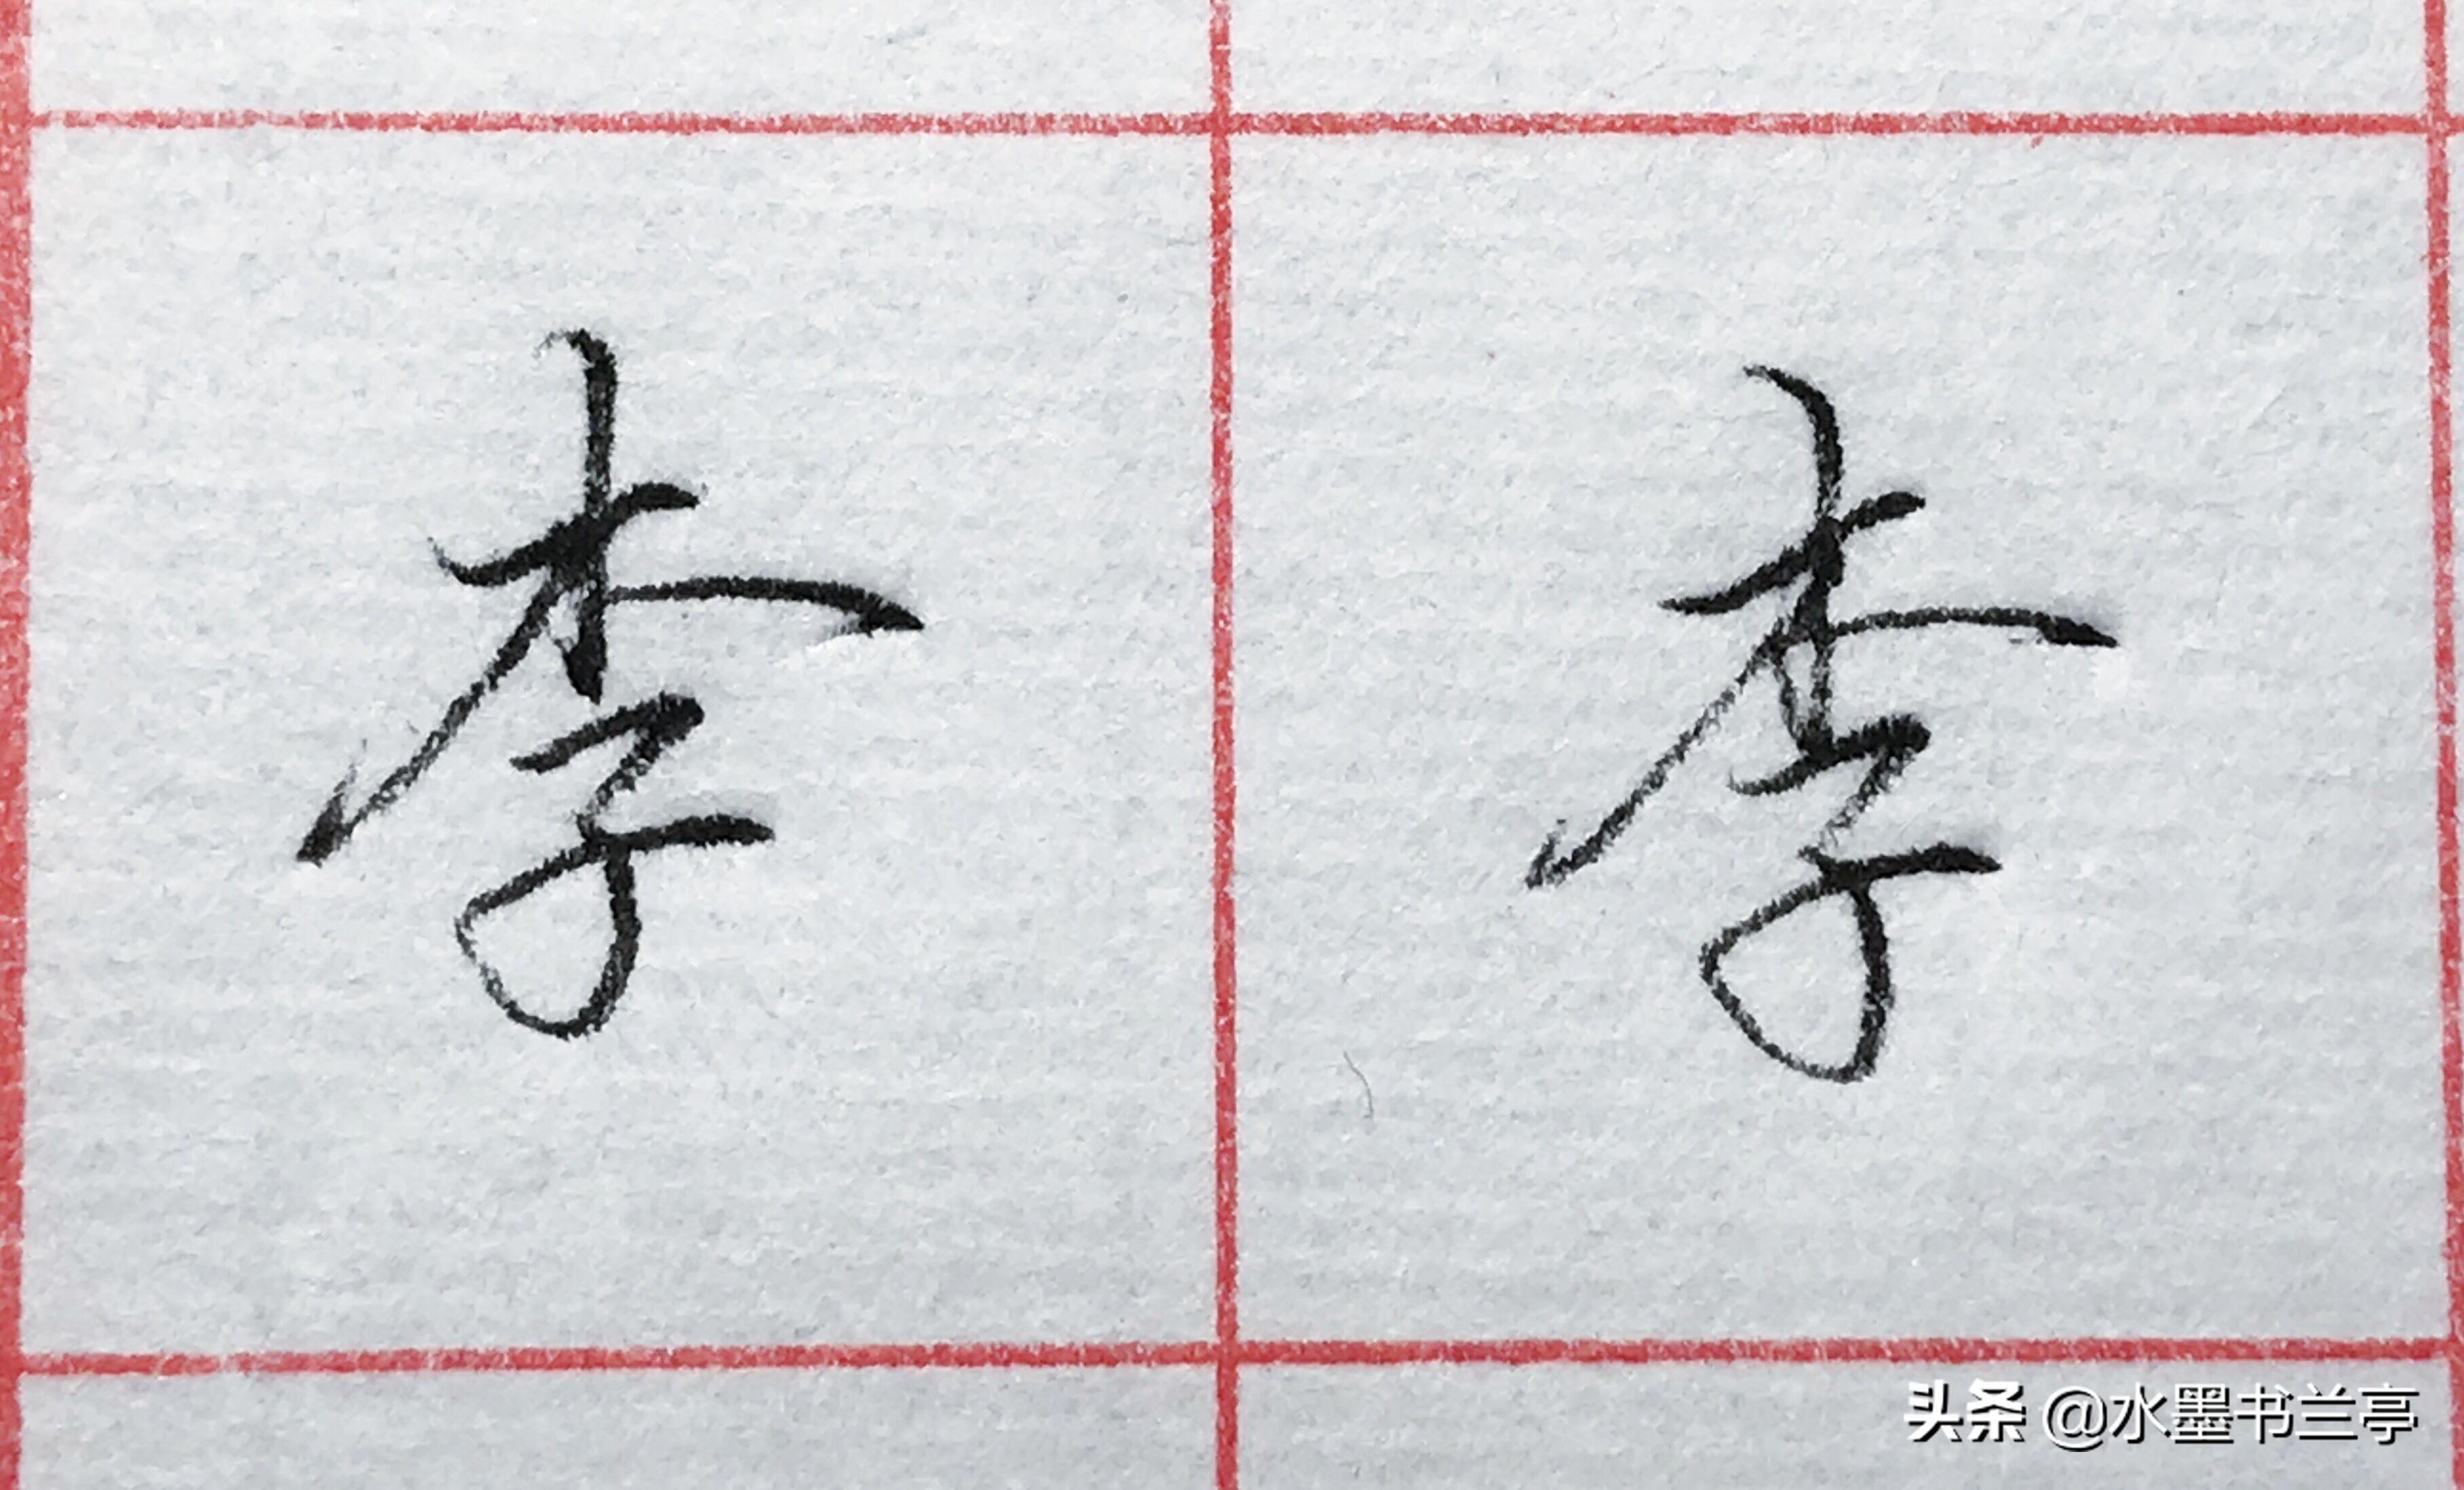 李 李
头条 @水墨书兰亭